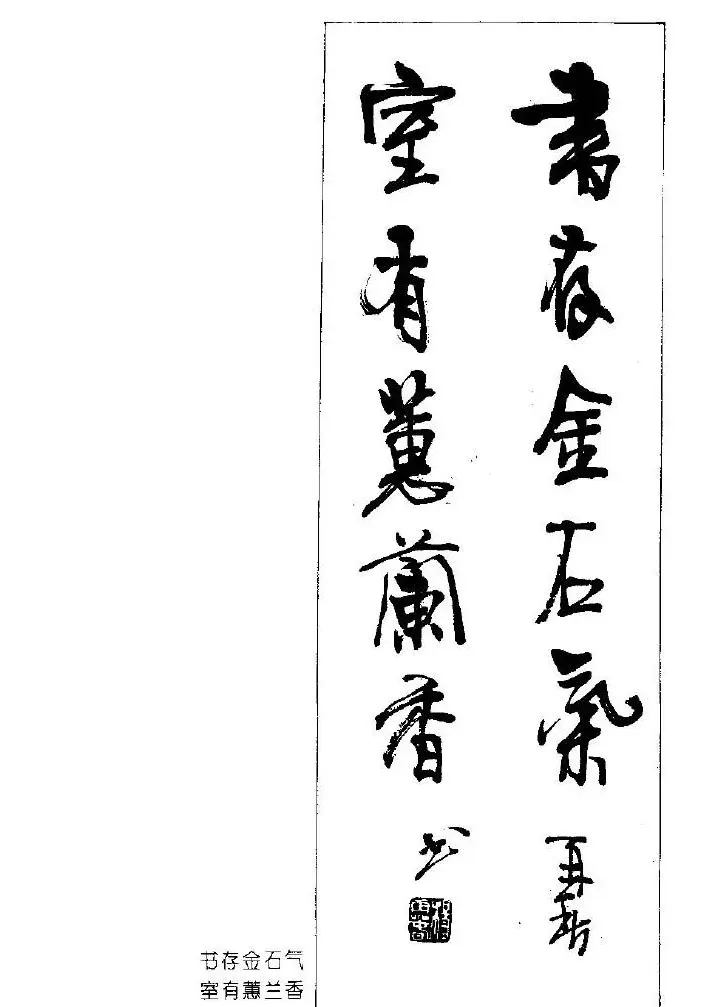 書存金石氣
室有蕙蘭香
书存金石气
室有蕙兰香